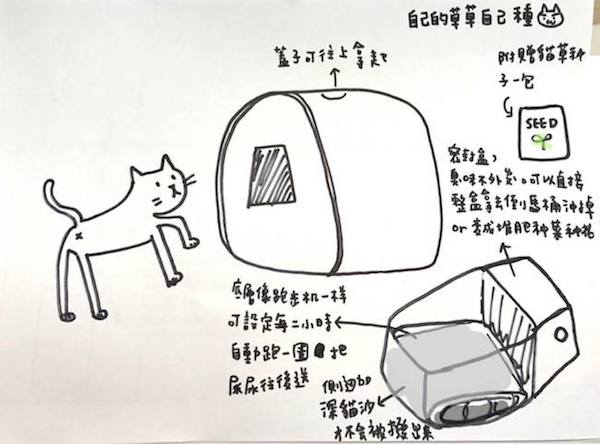 自己的草草自己種
蓋子可往上拿起
附贈貓草種
子一包
SEED
密封盒,
臭味不外氣。可以直接
整盒拿去倒馬桶沖掉
or 變成堆肥種菜種菇
底層像跑步机一樣
可設定每二小時
自動跑一圈 把
尿尿往後送
側邊加
深貓沙
才不會被撥出來